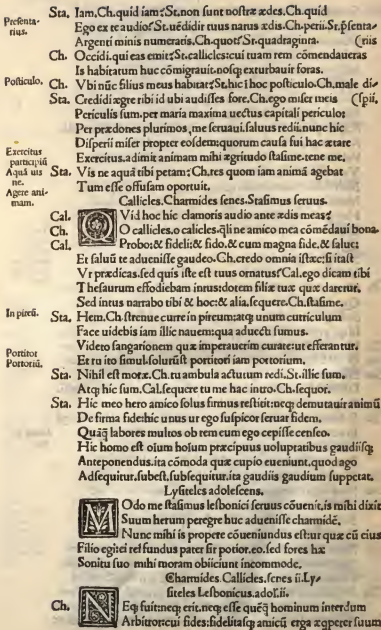 Sta. Iam. Ch. quid iam? St. non sunt nostræ ædes. Ch. quid
Præsentarius.
Ego ex te audio? St. uēdidit tuus narus ædis. Ch. perii. St. p̄senta-
Argenti minis numeratis. Ch. quot? St. quadraginta. (riis
Ch. Occidi. qui eas emit? St. callicles: cui tuam rem cōmendaueras
Is habitatum huc cōmigrauit. nosq; exturbauit foras.
Posticulo. Ch. Vbi nūc filius meus habitat? St. hic ī hoc posticulo. Ch. male di-
Sta. Credidi ægre tibi id ubi audisses fore. Ch. ego miser meis (spii,
Periculis sum. per maria maxima uectus capitali periculo:
Per prædones plurimos, me seruaui. saluus redii. nunc hic
Disperii miser propter eosdem: quorum causa fui hac ætare
Exercitus participiū
Exercitus. adimit animam mihi ægritudo stasime. tene me.
Aquā uis ne.
Sta. Vis ne aquā tibi petam? Ch. res quom iam animā agebat
Agere animam.
Tum esse offusam oportuit.
Callicles. Charmides senes. Stasimus seruus.
Cal. QVid hoc hic clamoris audio ante ædis meas?
Ch. O callicles. o callicles. q̄li ne amico mea cōmēdaui bona.
Cal. Probo: & fideli: & fido. & cum magna fide. & salue:
Et saluū te aduenisse gaudeo. Ch. credo omnia istæc: si ita st
Vt prædicas. sed quis iste est tuus ornatus? Cal. ego dicam tibi
Thesaurum effodiebam intus: dotem filiæ tuæ quæ daretur.
Sed intus narrabo tibi & hoc: & alia. sequere. Ch. stasime.
In pireū. Sta. Hem. Ch. strenue curre in piræum: atq; unum curriculum
Face uidebis iam illic nauem: qua aduecti sumus.
Videto sangarionem quæ imperauerim curare: ut efferantur.
Portitor
Portoriū.
Et tu ito simul. solutū st portitori iam portorium.
Sta. Nihil est moræ. Ch. tu ambula actutum redi. St. illic sum.
Atq; hic sum. Cal. sequere tu me hac intro. Ch. sequor.
Sta. Hic meo hero amico solus firmus restitit: neq; demutauit animū
De firma fide: hic unus ut ego suspicor seruat fidem.
Quāq̄ labores multos ob rem eum ego cepisse censeo.
Hic homo est oīum hoīum præcipuus uoluptatibus gaudiisq;
Anteponendus. ita cōmoda quæ cupio eueniunt. quod ago
Adsequitur. subest. subsequitur. ita gaudiis gaudium suppetat.
Lysiteles adolescens.
MOdo me stasimus lesbonici seruus cōuenit. is mihi dixit
Suum herum peregre huc aduenisse charmidē.
Nunc mihi is propere cōueniundus est: ut quæ cū eius
Filio egi: ei rei fundus pater sit potior. eo. sed fores hæ
Sonitu suo mihi moram obiiciunt incommode.
Charmides. Callicles. senes ii. Ly-
siteles Lesbonicus. adol. ii.
Ch. NEq; fuit: neq; erit. neq; esse quēq̄ hominum interdum
Arbitror: cui fides: fidelitasq; amicū erga æqperet suum